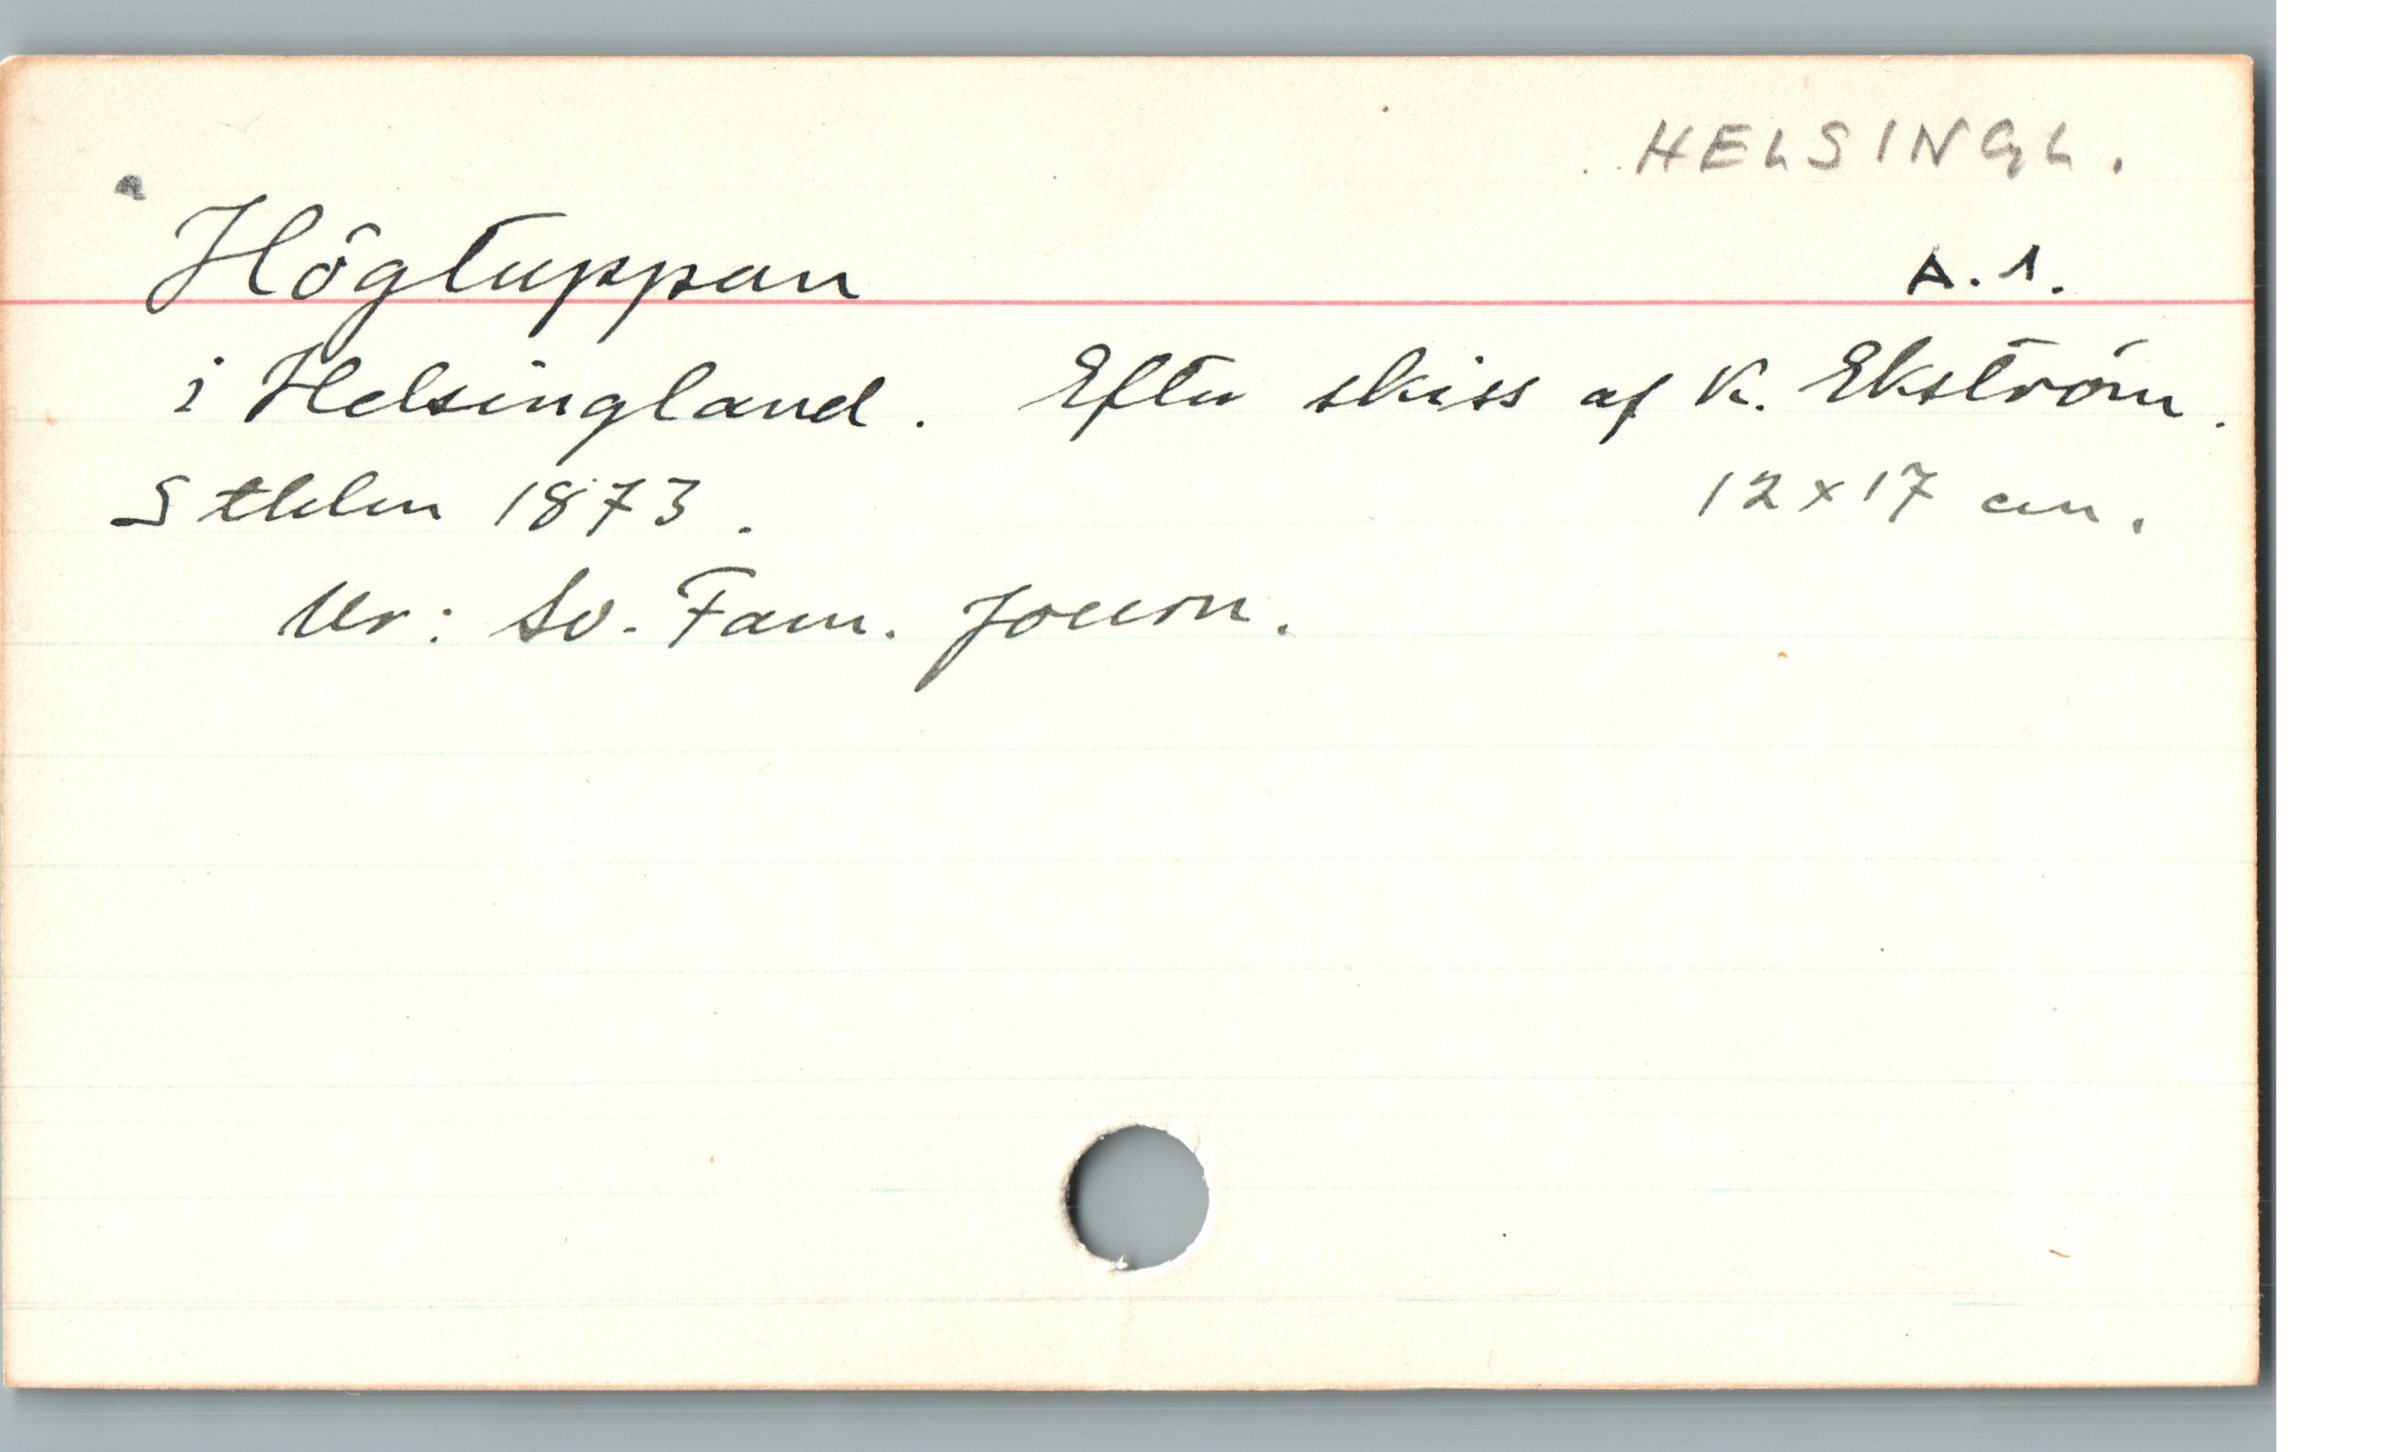 HELSINGL.
Högtuppan A.1.
i Helsingland. Efter skiss af K. Ekström.
Sthlm 1873. 12x17 cm.
Ur: Sv. Fam. Journ.